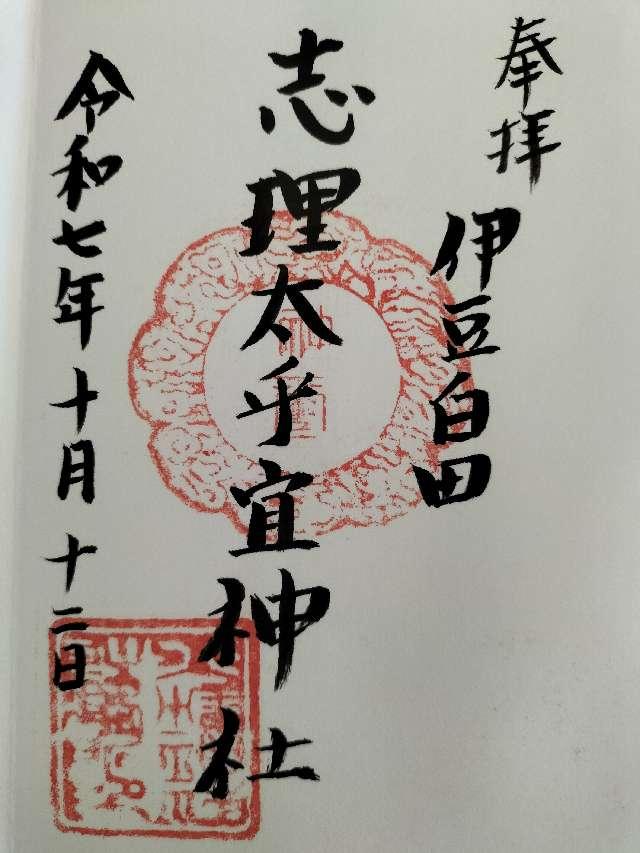 奉拝
伊豆白田
志理太乎宜神社
令和七年十月十二日